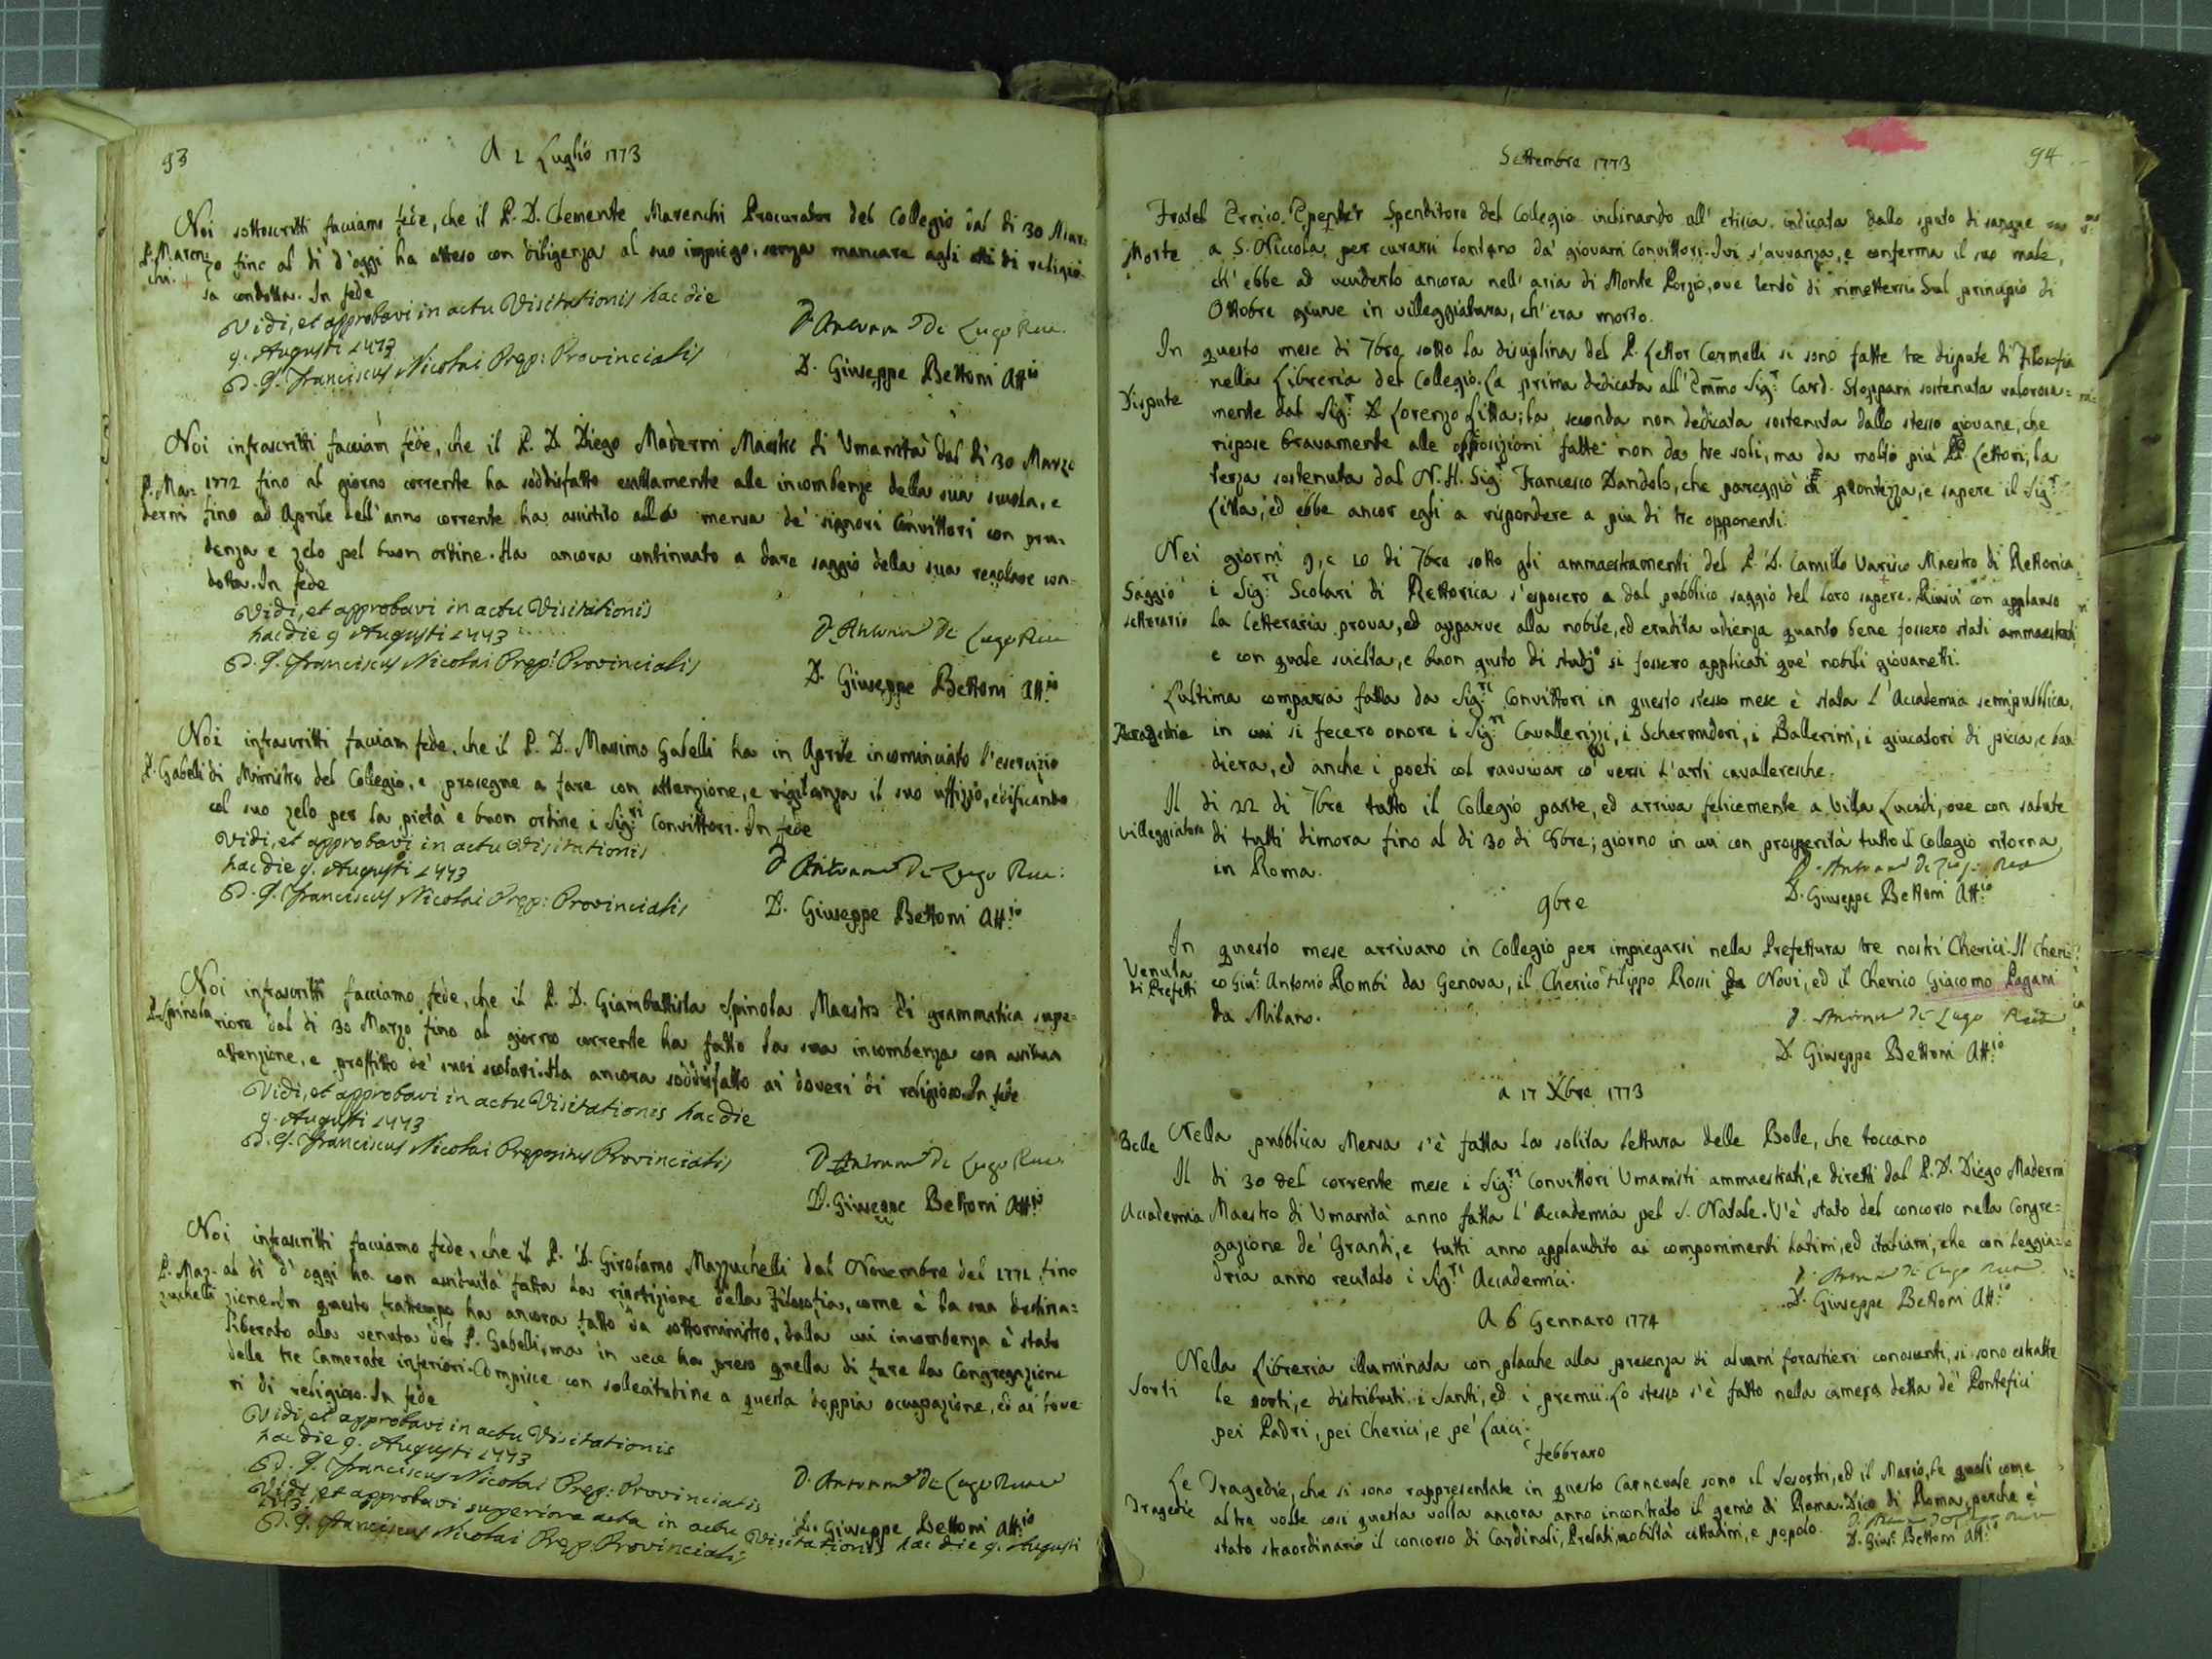 93
A 2 Luglio 1773
Noi sottoscritti facciamo fede, che il P. D. Clemente Marenchi Procurator del Collegio dal di 30 Mar:
P. Maren: zo fino al di d'oggi ha atteso con diligenza al suo impiego, senza mancare agli atti di religio-
chi. sa condotta. In fede
Vidi, et approbavi in actu Visitationis hac die
9. Augusti 1773
D. G. Franciscus Nicolai Prep: Provincialis
D. Antonio De Lugo Ret.
D. Giuseppe Bettoni Att.io
Noi infrascritti facciam fede, che il P. D. Diego Maderni Maestro di Umanità dal di 30 Marzo
P. Ma= 1772 fino al giorno corrente ha soddisfatto esattamente alle incombenze della sua scuola, e
derni fino ad Aprile dell'anno corrente ha assistito alla mensa de' signori Convittori con pru-
denza e zelo pel buon ordine. Ha ancora continuato a dare saggio della sua regolare con-
dotta. In fede
Vidi, et approbavi in actu Visitationis
hac die 9 Augusti 1773
D. G. Franciscus Nicolai Prep: Provincialis
D. Antonio De Lugo Ret
D. Giuseppe Bettoni Att.io
Noi infrascritti facciam fede, che il P. D. Massimo Gabelli ha in Aprile incominciato l'esercizio
P. Gabelli di Ministro del Collegio, e prosegue a fare con attenzione, e vigilanza il suo uffizio, edificando
col suo zelo per la pietà e buon ordine i Sig.ri Convittori. In fede
Vidi, et approbavi in actu Visitationis
hac die 9. Augusti 1773
D. G. Franciscus Nicolai Prep: Provincialis
D. Antonio De Lugo Ret.
D. Giuseppe Bettoni Att.io
Noi infrascritti facciamo fede, che il P. D. Giambattista Spinola Maestro di grammatica supe=
P. Spinola riore dal di 30 Marzo fino al giorno corrente ha fatto la sua incombenza con assidua
attenzione, e proffitto de' suoi scolari. Ha ancora soddisfatto ai doveri di religioso. In fede
Vidi, et approbavi in actu Visitationis hac die
9. Augusti 1773
D. G. Franciscus Nicolai Prepositus Provincialis
D. Antonio De Lugo Ret.
D. Giuseppe Bettoni Att.io
Noi infrascritti facciamo fede, che il P. D. Girolamo Mazzuchelli dal Novembre del 1772 fino
P. Maz- al di d'oggi ha con assiduità fatta la ripetizione della Filosofia, come è la sua destina=
zuchelli zione. In questo trattempo ha ancora fatto da sottoministro, dalla cui incombenza è stato
liberato alla venuta del P. Gabelli, ma in vece ha preso quella di fare la Congregazione
delle tre Camerate inferiori. Compisce con sollecitudine a questa doppia occupazione, ed ai dove
ri di religioso. In fede
Vidi, et approbavi in actu Visitationis
hac die 9. Augusti 1773
D. G. Franciscus Nicolai Prep: Provincialis
D. Antonio De Lugo Ret
D. Giuseppe Bettoni Att.io
Vidi, et approbavi superiora acta in actu Visitationis hac die 9. Augusti
1773.
D. G. Franciscus Nicolai Prep: Provincialis
94
Settembre 1773
Fratel Errico Spenditore del Collegio inclinando all'etisia indicata dallo sputo di sangue
Morte a S. Niccola, per curarsi lontano da' giovani Convittori. Ivi s'avvanza, e conferma il suo male,
ch'ebbe ad ucciderlo ancora nell'aria di Monte Porzio, ove tentò di rimettersi. Sul principio di
Ottobre giunse in villeggiatura, ch'era morto.
In questo mese di 7bre sotto la disciplina del P. Lettor Cermelli si sono fatte tre dispute di Filosofia
Dispute nella Libreria del Collegio. La prima dedicata all'Emmo Sig.r Card. Stoppani sostenuta valorosa=
mente dal Sig.r D. Lorenzo Litta; la seconda non dedicata sostenuta dallo stesso giovane, che
rispose bravamente alle opposizioni fatte non da tre soli, ma da molti più PP. Lettori; la
terza sostenuta dal N. H. Sig.r Francesco Dandolo, che pareggiò in prontezza, e sapere il Sig.r
Litta, ed ebbe ancor egli a rispondere a più di tre opponenti.
Nei giorni 9, e 10 di 7bre sotto gli ammaestramenti del P. D. Camillo Varisco Maestro di Rettorica
Saggio i Sig.ri Scolari di Rettorica s'esposero a dal pubblico saggio del loro sapere. Riuscì con applauso
Letterario la letteraria prova, ed apparve alla nobile, ed erudita udienza quanto bene fossero stati ammaestrati,
e con quale scielta, e buon gusto di studj si fossero applicati que' nobili giovanetti.
L'ultima comparsa fatta da Sig.ri Convittori in questo stesso mese è stata l'Accademia semipubblica,
in cui si fecero onore i Sig.ri Cavallerizzi, i Schermidori, i Ballerini, i giucatori di picca, e ban
diera, ed anche i poeti col ravvivar co' versi l'arti cavalleresche.
Il di 22 di 7bre tutto il Collegio parte, ed arriva felicemente a Villa Lucidi, ove con salute
Villeggiatura di tutti dimora fino al di 30 di 8bre; giorno in cui con prosperità tutto il Collegio ritorna
in Roma.
D. Antonio De Lugo Ret
D. Giuseppe Bettoni Att.io
9bre
In questo mese arrivano in Collegio per impiegarsi nella Prefettura tre nostri Cherici. Il Cheri=
Venuta di Prefetti co Gius. Antonio Rombi da Genova, il Cherico Filippo Rossi da Novi, ed il Cherico Giacomo Pagani
da Milano.
D. Antonio De Lugo Ret
D. Giuseppe Bettoni Att.io
a 17 Xbre 1773
Bolle Nella pubblica Mensa s'è fatta la solita lettura delle Bolle, che toccano
Il di 30 del corrente mese i Sig.ri Convittori Umanisti ammaestrati, e diretti dal P. D. Diego Maderni
Accademia Maestro di Umanità anno fatta l'Accademia pel S. Natale. V'è stato del concorso nella Congre=
gazione de' Grandi, e tutti anno applaudito ai componimenti latini, ed italiani, che con leggia=
dria anno recitato i Sig.ri Accademici.
D. Antonio De Lugo Ret
D. Giuseppe Bettoni Att.io
A 6 Gennaro 1774
Nella Libreria illuminata con placche alla presenza di alcuni forastieri conoscenti, si sono estratte
Sorti le sorti, e distribuiti i Santi, ed i premii. Lo stesso s'è fatto nella camera detta de' Pontefici
pei Padri, pei Cherici, e pe' Laici.
febbraro
Le Tragedie, che si sono rappresentate in questo Carnevale sono il Sesostri, ed il Mario, le quali come
Tragedie altre volte così questa volta ancora anno incontrato il genio di Roma. Dico di Roma, perche è
stato straordinario il concorso di Cardinali, Prelati, nobiltà cittadini, e popolo.
D. Gius. Bettoni Att.io